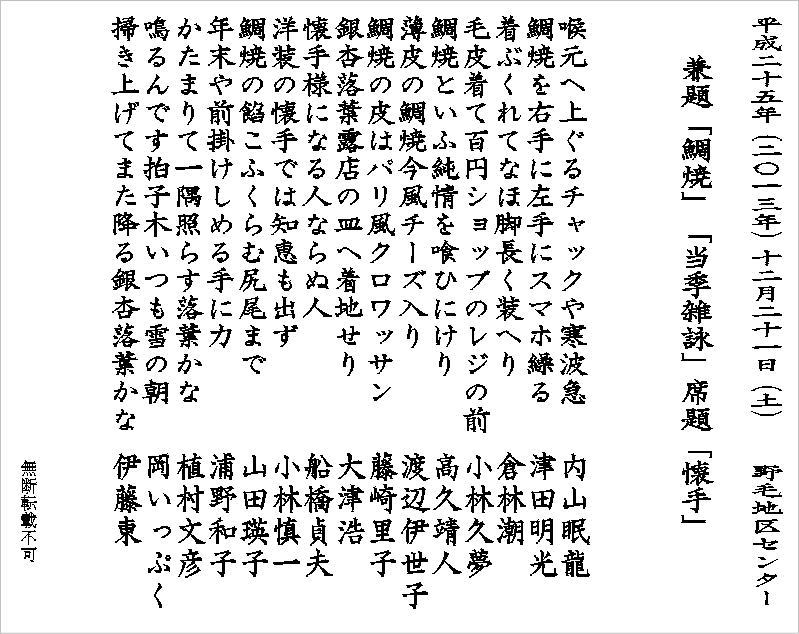 平成二十五年（二〇一三年）十二月二十一日（土） 野毛地区センター
兼題「鯛焼」「当季雑詠」席題「懐手」
喉元へ上ぐるチャックや寒波急 内山眠龍
鯛焼を右手に左手にスマホ繰る 津田明光
着ぶくれてなほ脚長く装へり 倉林潮
毛皮着て百円ショップのレジの前 小林久夢
鯛焼といふ純情を喰ひにけり 高久靖人
薄皮の鯛焼今風チーズ入り 渡辺伊世子
鯛焼の皮はパリ風クロワッサン 藤崎里子
銀杏落葉露店の皿へ着地せり 大津浩
懐手様になる人ならぬ人 船橋貞夫
洋装の懐手では知恵も出ず 小林慎一
鯛焼の餡こふくらむ尻尾まで 山田瑛子
年末や前掛けしめる手に力 浦野和子
かたまりて一隅照らす落葉かな 植村文彦
鳴るんです拍子木いつも雪の朝 岡いっぷく
掃き上げてまた降る銀杏落葉かな 伊藤東
無断転載不可